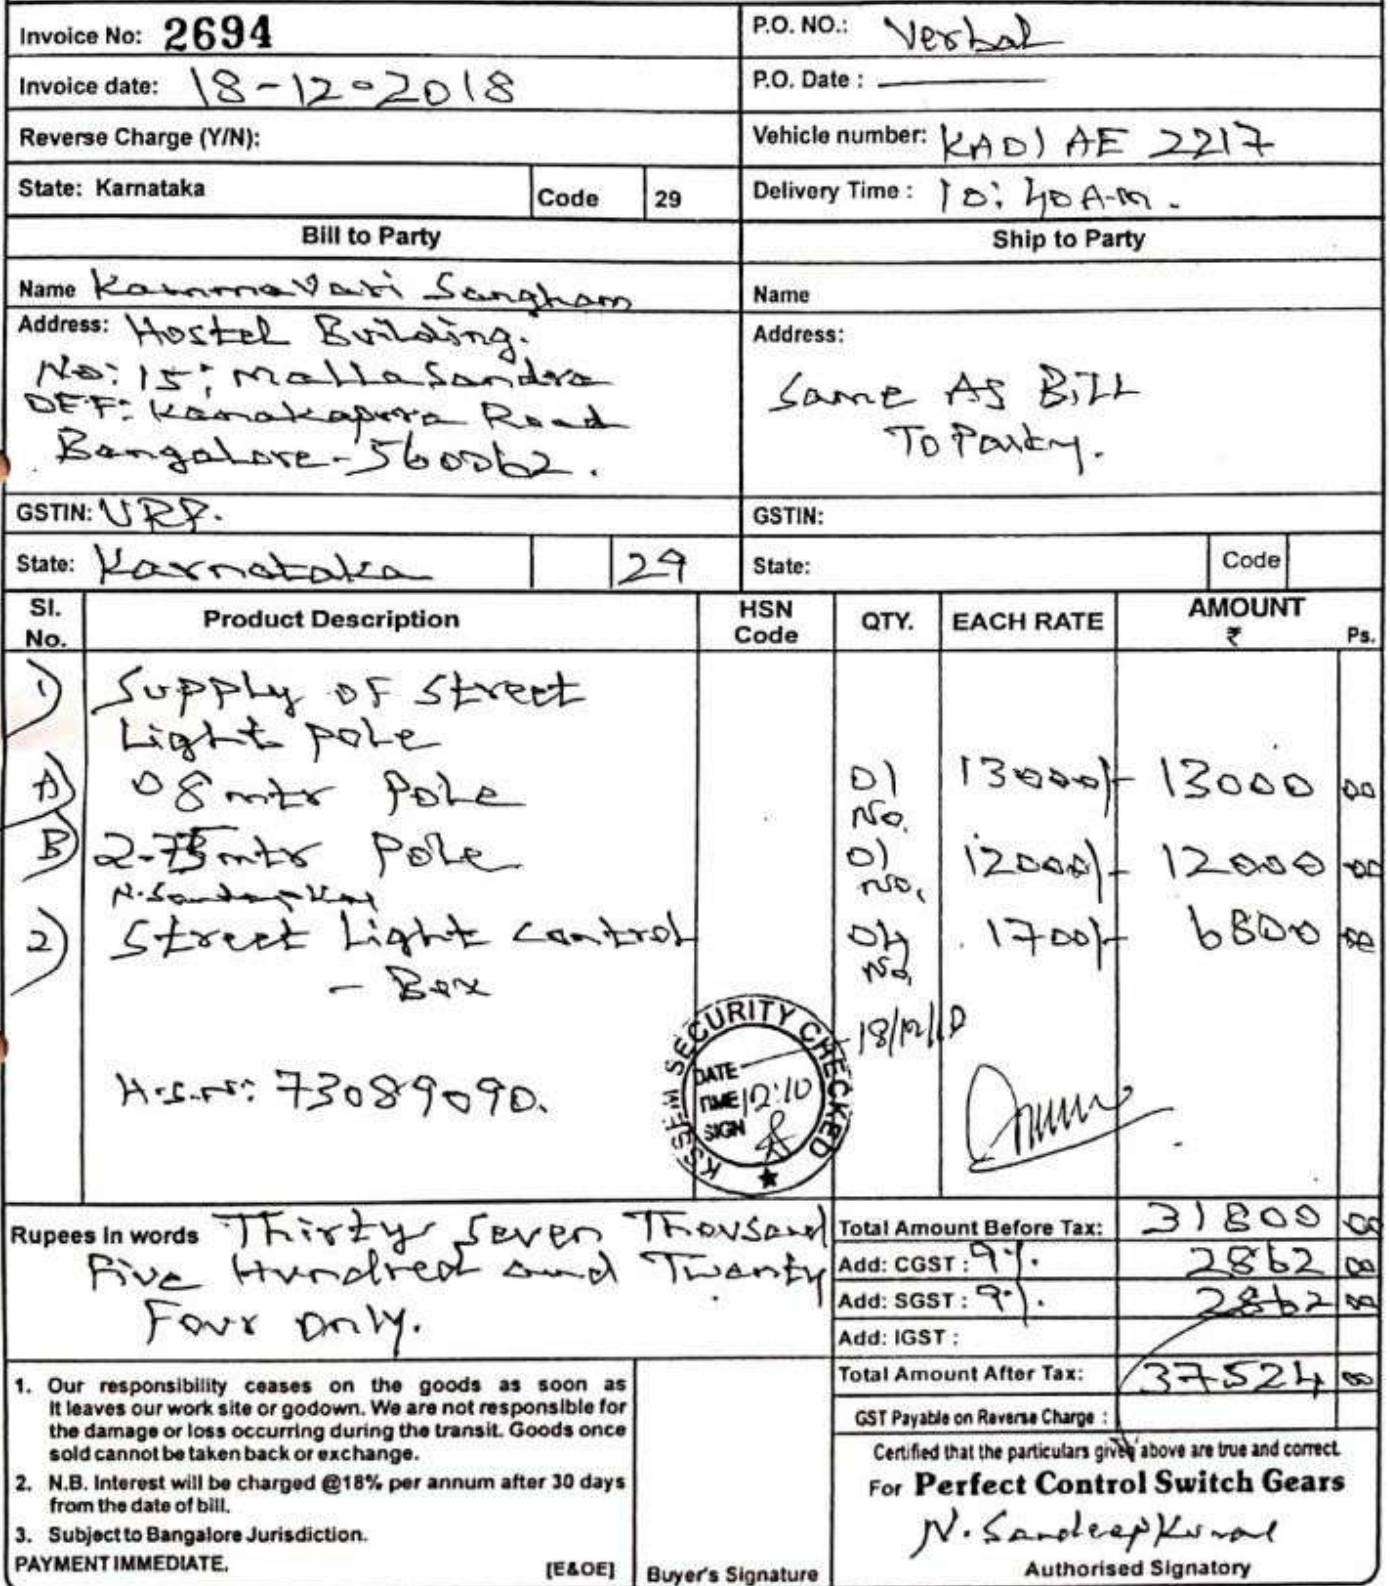 Invoice No: 2694
P.O. NO.: Verbal
Invoice date: 18-12-2018
P.O. Date : ———
Reverse Charge (Y/N):
Vehicle number: KA01 AE 2217
State: Karnataka Code 29
Delivery Time : 10:40 A.m.
Bill to Party
Ship to Party
Name Kammavari Sangham
Name
Address: Hostel Building.
No: 15, Mallasandra
OFF: Kanakapura Road
Bangalore-560062.
Address:
Same As Bill
To Party.
GSTIN: URP.
GSTIN:
State: Karnataka 29
State: Code
Sl. No. Product Description HSN Code QTY. EACH RATE AMOUNT ₹ Ps.
1) Supply of Street
Light pole
A) 08 mtr Pole 01 No. 13000/- 13000 00
B) 2.75 mtr Pole 01 No. 12000/- 12000 00
2) Street Light Control 04 No. 1700/- 6800 00
- Box
H.S.N: 73089090.
KSSEM SECURITY CHECKED
DATE 18/12/18
TIME 12:10
SIGN
Rupees In words Thirty Seven Thousand
Five Hundred and Twenty
Four Only.
Total Amount Before Tax: 31800 00
Add: CGST : 9%. 2862 00
Add: SGST : 9%. 2862 00
Add: IGST :
Total Amount After Tax: 37524 00
GST Payable on Reverse Charge :
1. Our responsibility ceases on the goods as soon as
It leaves our work site or godown. We are not responsible for
the damage or loss occurring during the transit. Goods once
sold cannot be taken back or exchange.
2. N.B. Interest will be charged @18% per annum after 30 days
from the date of bill.
3. Subject to Bangalore Jurisdiction.
PAYMENT IMMEDIATE. [E&OE]
Buyer's Signature
Certified that the particulars given above are true and correct.
For Perfect Control Switch Gears
N. Sandeep Kumar
Authorised Signatory